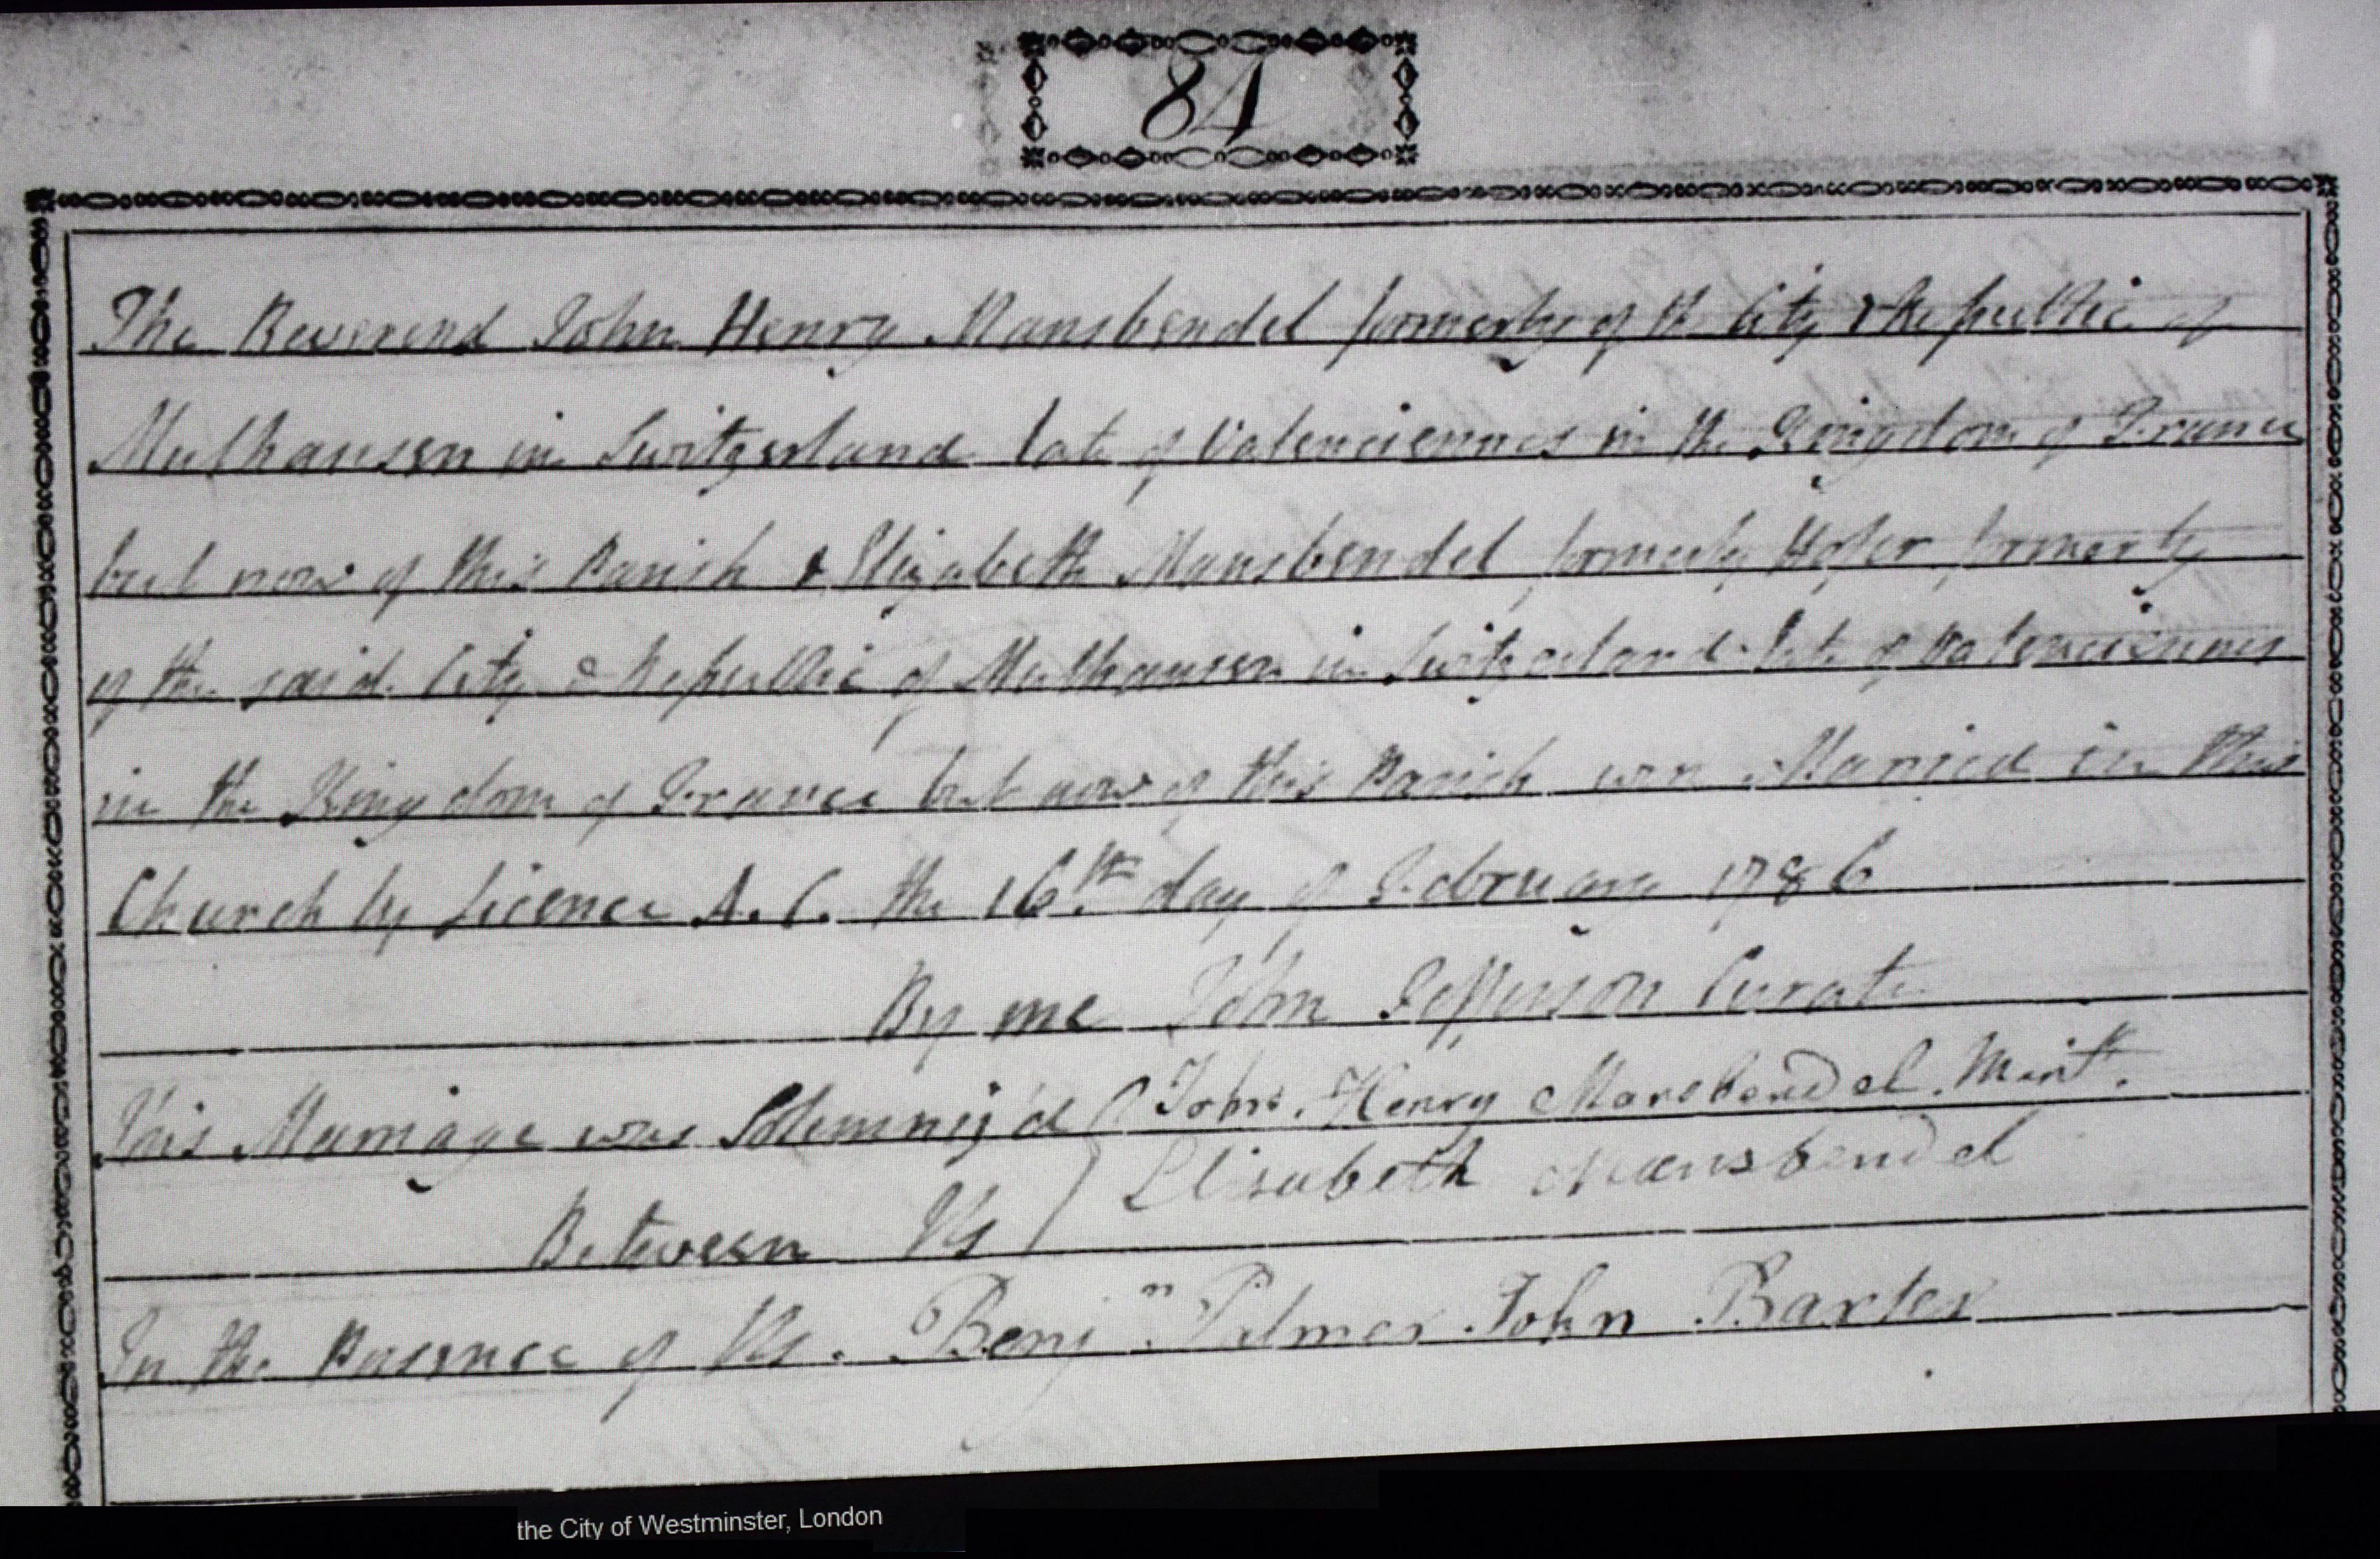 84
The Reverend John Henry Mansbendel formerly of the City & Republic of
Mulhausen in Switzerland late of Valenciennes in the Kingdom of France
but now of this Parish & Elizabeth Mansbendel formerly Hofer formerly
of the said City & Republic of Mulhausen in Switzerland late of Valenciennes
in the Kingdom of France but now of this Parish were Married in this
Church by Licence A. C. the 16.th day of February 1786
By me John Jefferson Curate
This Marriage was Solemniz'd John Henry Mansbendel. Minr.
Elisabeth Mansbendel
Between Us
In the Presence of Us. Benjn. Palmer John Baxter
the City of Westminster, London